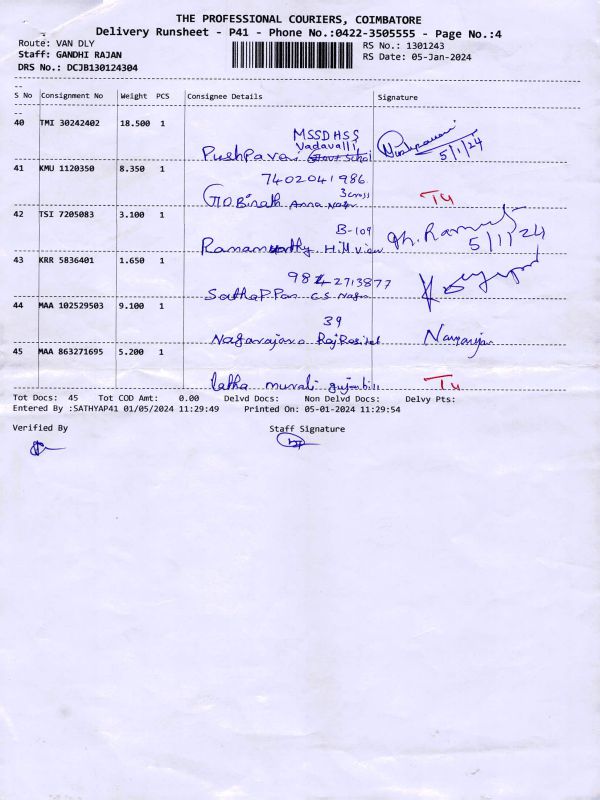 THE PROFESSIONAL COURIERS, COIMBATORE
Delivery Runsheet - P41 - Phone No.:0422-3505555 - Page No.:4
Route: VAN DLY RS No.: 1301243
Staff: GANDHI RAJAN RS Date: 05-Jan-2024
DRS No.: DCJB130124304
S No Consignment No Weight PCS Consignee Details Signature
40 TMI 30242402 18.500 1
MSSDHSS
Vadavalli
5/1/24
41 KMU 1120350 8.350 1
7402041986
3cross
Anna Nagar
42 TSI 7205083 3.100 1
B-109
Hill View
5/1/24
43 KRR 5836401 1.650 1
9842713877
C.S. Nagar
44 MAA 102529503 9.100 1
39
45 MAA 863271695 5.200 1
latha murali
Tot Docs: 45 Tot COD Amt: 0.00 Delvd Docs: Non Delvd Docs: Delvy Pts:
Entered By :SATHYAP41 01/05/2024 11:29:49 Printed On: 05-01-2024 11:29:54
Verified By Staff Signature